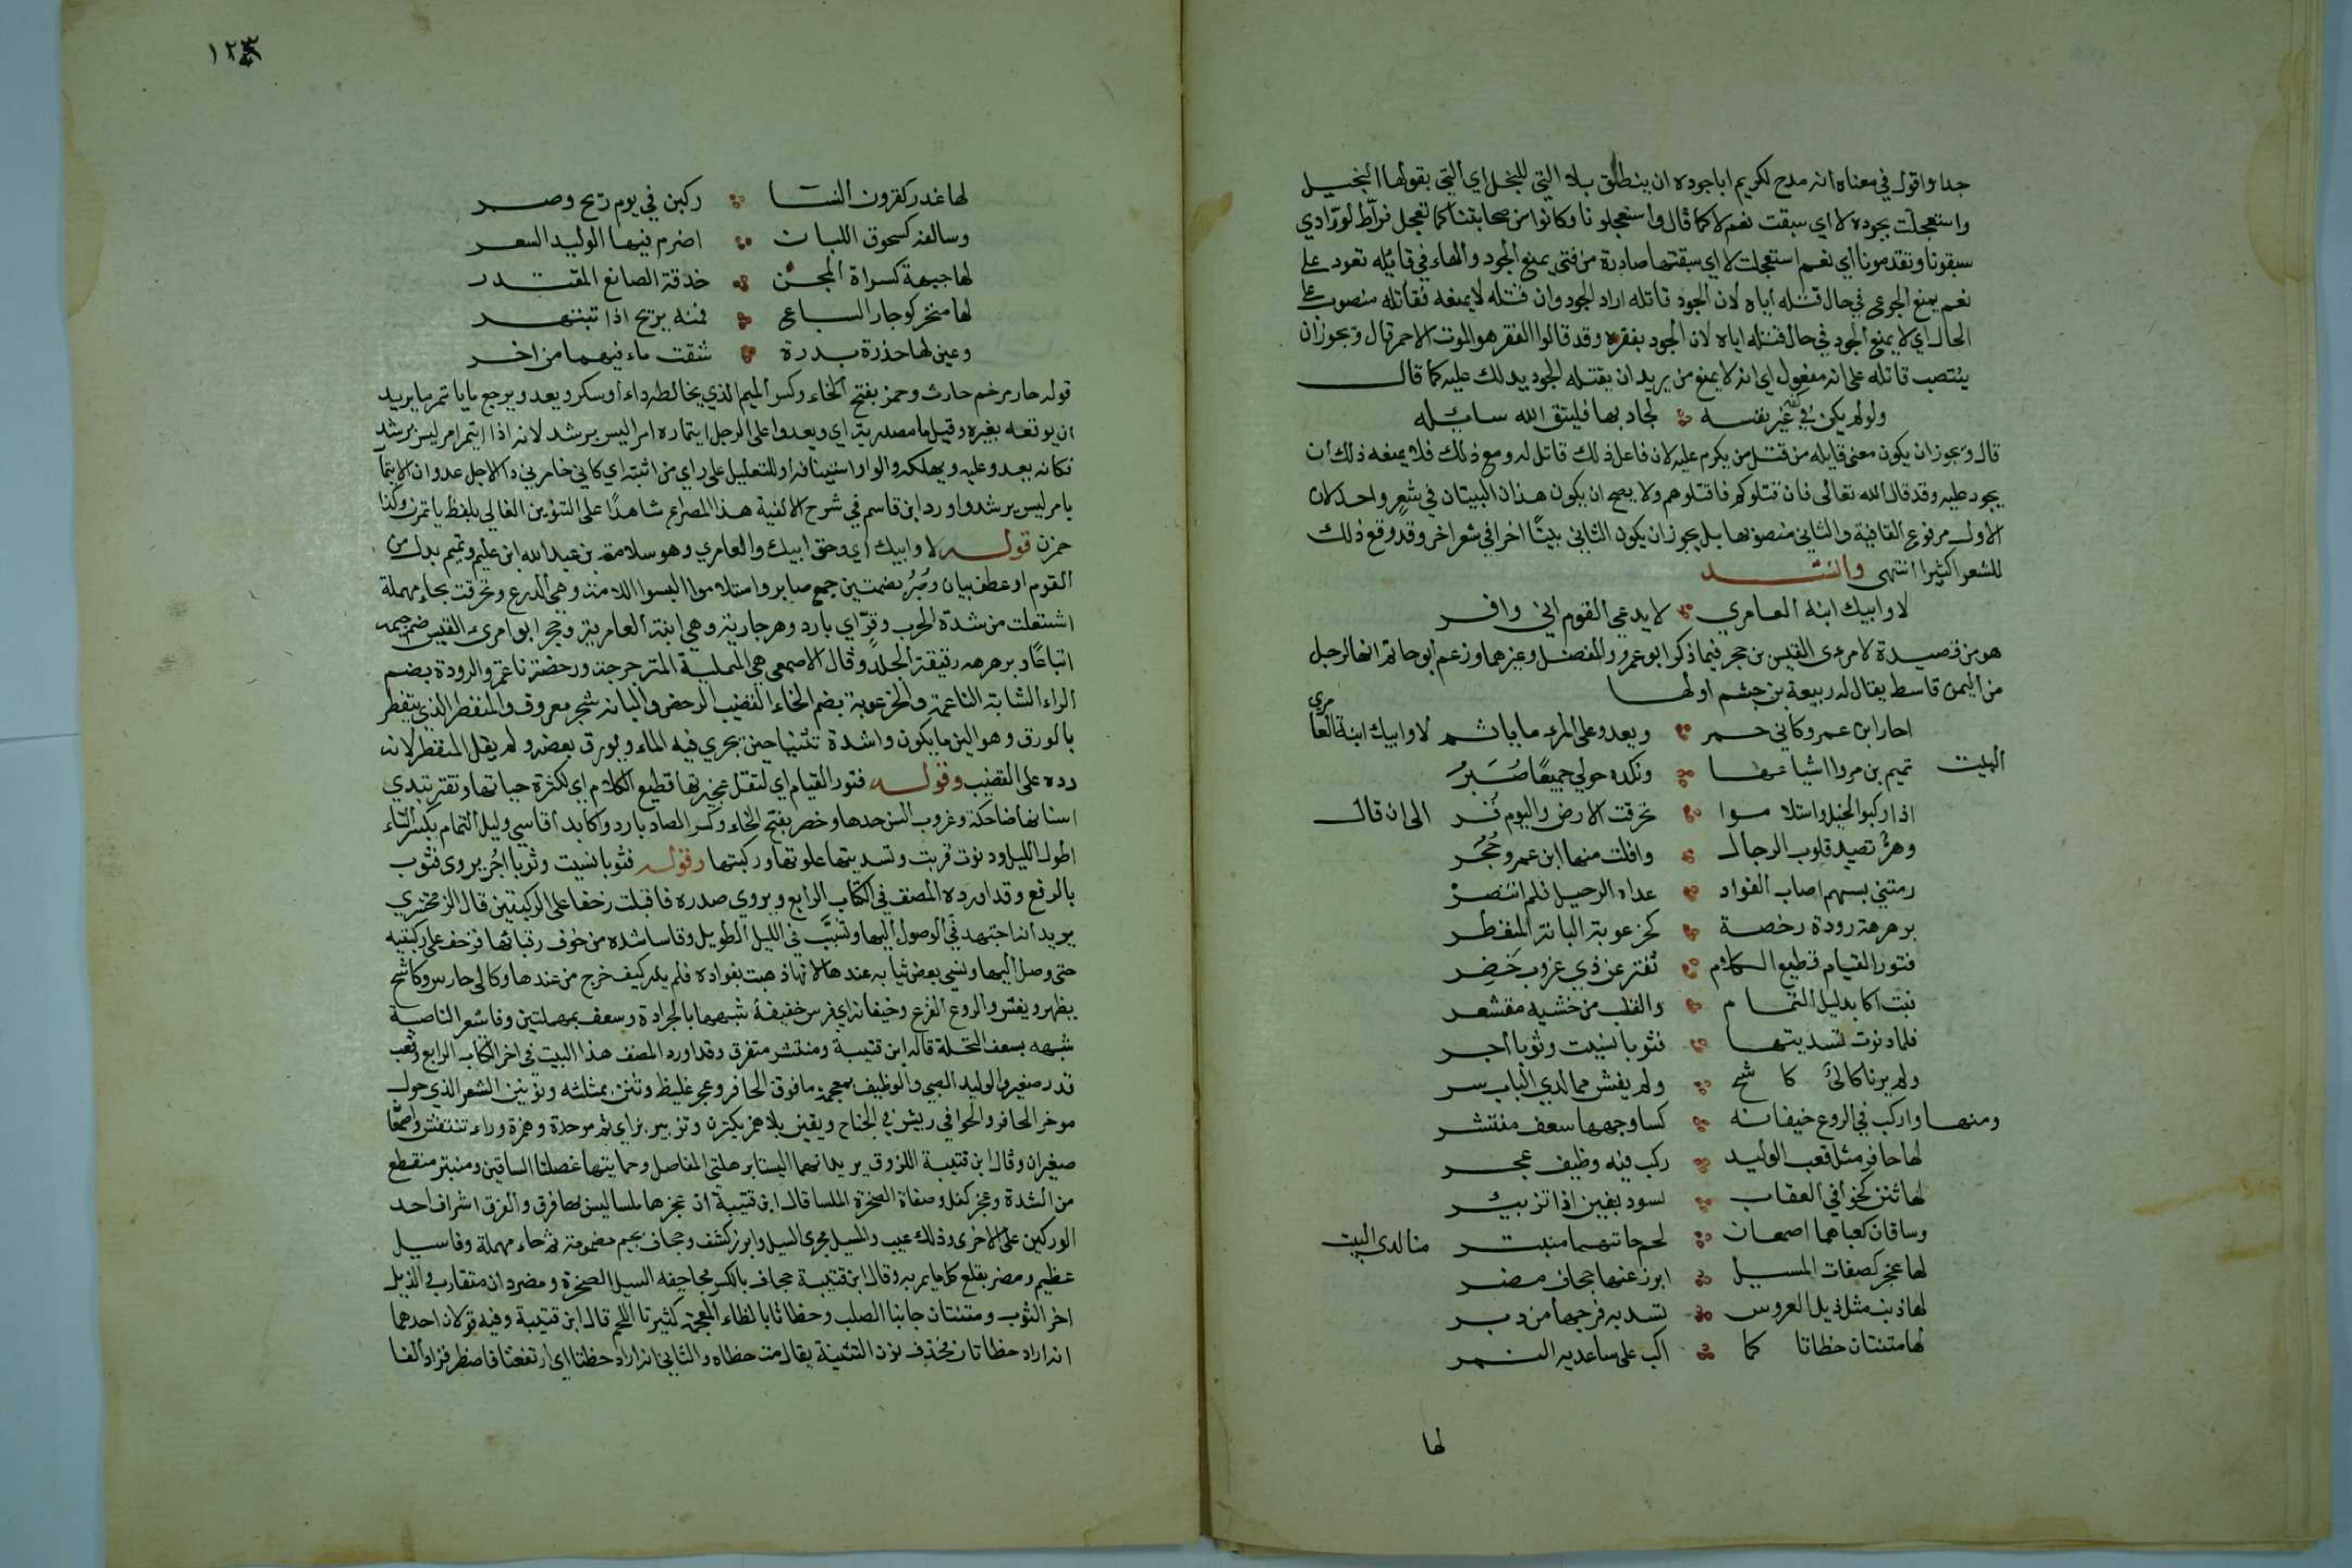 جدا واقول في معناه انه مدح لكريم ابا جوده ان ينطق بلا التي للبخل اي التي يقولها البخيل
واستعجلت بجوده لا اي سبقت نعم لا كما قال واستعجلونا وكانوا من صحابتنا كما تعجل فراط لورّادي
سبقونا وتقدمونا اي نعم استعجلت لا اي سبقتها صادرة من فتى يمنع الجود والهاء في قاتله تعود على
نعم يمنع الجوع في حال قتله اياه لان الجود قاتله اراد الجود وان قتله لا يمنعه فقاتله منصوب على
الحال اي لا يمنع الجود في حال قتله اياه لان الجود يفقره وقد قالوا الفقر هو الموت الاحمر قال ويجوز ان
ينتصب قاتله على انه مفعول اي انه لا يمنع من يريد ان يقتله الجود يدلك عليه كما قال
ولو لم يكن في كفه غير نفسه لجاد بها فليتق الله سائله
قال ويجوز ان يكون معنى قايله من قتل من يكرم عليه لان فاعل ذلك قاتل له ومع ذلك فلا يمنعه ذلك ان
يجود عليه وقد قال الله تعالى فان قتلوكم فاقتلوهم ولا يصح ان يكون هذان البيتان في شعر واحد لان
الاول مرفوع القافية والثاني منصوبها بل يجوز ان يكون الثاني بيتًا اخر في شعر اخر وقد وقع ذلك
للشعر اكثيرا انتهى وانشد
لا وابيك ابنة العامري لا يدعي القوم اني وافر
هو من قصيدة لامرئ القيس بن حجر فيما ذكر ابو عمرو والمفضل وغيرهما وزعم ابو حاتم انها لرجل
من اليمن قاسط يقال له ربيعة بن جشم اولها
احار ابن عمرو كاني خمر ويعدو على المرء ما ياتمر لا وابيك ابنة العامري
البيت تميم بن مر واشياعها وكنده حولي جميعًا صُبُرْ
اذا ركبوا الخيل واستلاموا تحرقت الارض واليوم قر الى ان قال
وهرٌّ تصيد قلوب الرجال وافلت منها ابن عمرو حُجُر
رمتني بسهم اصاب الفواد غداه الرحيل فلم انتصر
برهرهة رودة رخصة كخرعوبة البانة المنفطر
فتور القيام قطيع الكلام تفتر عن ذي غروب خصر
فبت اكابد ليل التمام والقلب من خشيه مقشعر
فلما دنوت تسديتها فثوبا نسيت وثوبا اجر
ولم يرنا كالئ كاشح ولم يفش مما لدي الباب سر
ومنها واركب في الروع خيفانه كسا وجهها سعف منتشر
لها حافر مثل قعب الوليد ركب فيه وظيف عجر
لها ثنن كخوافي العقاب لسود يفين اذا تزبئر
وساقان كعباهما اصمعان لحم حاتهما منبتر
لها عجز كصفات المسيل ابرز عنها جحاف مضر
لها ذنب مثل ذيل العروس تسد به فرجها من دبر
لها متنتان خظاتا كما اكب على ساعديه النمر
لها
١٢٣
لها غدر كقرون النسا ركبن في يوم ريح وصر
وسالفه كسحوق الليان اضرم فيها الوليد السعر
لها جبهة كسراة المجن حذقة الصانع المقتدر
لها منخر كوجار السباع فمنه يريح اذا تبتهر
وعين لها حذرة بدرة شقت ماء فيهما من اخر
قوله حار مرخم حارث وخمر بفتح الخاء وكسر الميم الذي يخالطه داء او سكر ويعدو يرجع ما ياتمر ما يريد
ان يوقعه بغيره وقيل ما مصدرية اي ويعدوا على الرجل ايتماره امرا ليس برشد لانه اذا ايتمر امر ليس برشد
فكانه يعدو عليه ويهلكه والواو استينافه او للتعليل على راي من اثبته اي كاني خامرني داء لاجل عدوان الايتما
بامر ليس برشد واورد ابن قاسم في شرح الالفية هذا المصراع شاهدًا على التنوين الغالي بلفظ ياتمرن وكذا
خمرن قوله لا وابيك اي وحق ابيك والعامري وهو سلامة بن عبد الله ابن عليم وتميم بدل من
القوم او عطف بيان وصُبُر بضمتين جمع صابر واستلاموا البسوا اللامة وهي الدرع وتحرقت بحاء مهملة
اشتعلت من شدة الحرب وقرّ اي بارد وهر جارية وهي ابنة العامرية وحجر ابو امرئ القيس ضم جيمه
اتباعًا وبرهرهه رقيقة الجلد وقال الاصمعي هي الممتلية المترجرجة ورخصة ناعمة والرودة بضم
الراء الشابة الناعمة والخرعوبة بضم الخاء القضيب الرخص والبانة شجر معروف والمنفطر الذي ينفطر
بالورق وهو الين ما يكون واشدة تثنيا حين يجري فيه الماء ويورق بعضه ولم يقل المنفطرة لانه
رده على القضيب وقوله فتور القيام اي لثقل عجيزتها قطيع الكلام اي لكثرة حيائها وتفتر تبدي
اسنانها ضاحكة وغروب السن حدها وخصر بفتح الخاء وكسر الصاد بارد واكابد اقاسي وليل التمام بكسر التاء
اطول الليل ودنوت قربت وتسديتها علوتها وركبتها وقوله فثوبا نسيت وثوبا اجُر يروى فثوب
بالرفع وقد اورده المصنف في الكتاب الرابع ويروي صدره فاقبلت زحفا على الركبتين قال الزمخشري
يريد انه اجتهد في الوصول اليها في الليل الطويل وقاسا شدة من خوف رقبائها فزحف على ركبتيه
حتى وصل اليها ونسي بعض ثيابه عندها لانها ذهبت بفواده فلم يدر كيف خرج من عندها وكالى حارس وكاشح
يظهر ويفش والروع الفزع وخيفانه اي فرس خفيفة شبهها بالجرادة وسعف بمهملتين وفا شعر الناصية
شبهه بسعف النخلة قاله ابن قتيبة ومنتشر متفرق وقد اورد المصنف هذا البيت في اخر الكتاب الرابع وقعب
قدر صغير والوليد الصبي والوظيف بمعجمة ما فوق الحافر وعجر غليظ وثنن بمثلثه ونونين الشعر الذي حول
موخر الحافر والخوافي ريش في الجناح ويفين بلا همز يكثرن وتزبير بزاي ثم موحدة وهمزة وراء تنتفش واصمعا
صغيران وقال ابن قتيبة اللزوق يريد انهما ليستا برهلتي المفاصل وحماتيها عضلتا الساقين ومنبتر منقطع
من الشدة وعجز كفل وصفاة الصخرة الملسا قال ابن قتيبة ان عجزها ملسا ليس بها فرق والفرق اشراف احد
الوركين على الاخرى وذلك عيب والمسيل مجرى السيل وابرز كشف وجحاف بجيم مضمومة ثم حاء مهملة وفا سيل
عظيم ومضر يقلع كل ما يمر به وقال ابن قتيبة جحاف بالكسر مجاحفه السيل الصخرة ومضر دان متقارب والذيل
اخر الثوب ومتنتان جانبا الصلب وخظاتا بالظاء المعجمة كثيرتا اللحم قال ابن قتيبة وفيه قولان احدهما
انه اراد خظاتان فحذف نون التثنية يقال متن خظاه والثاني انه اراد خظتا اي ارتفعتا فاضطر فزاد الفا